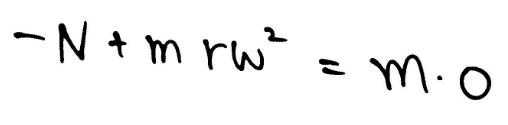 -N + m rω² = m.0